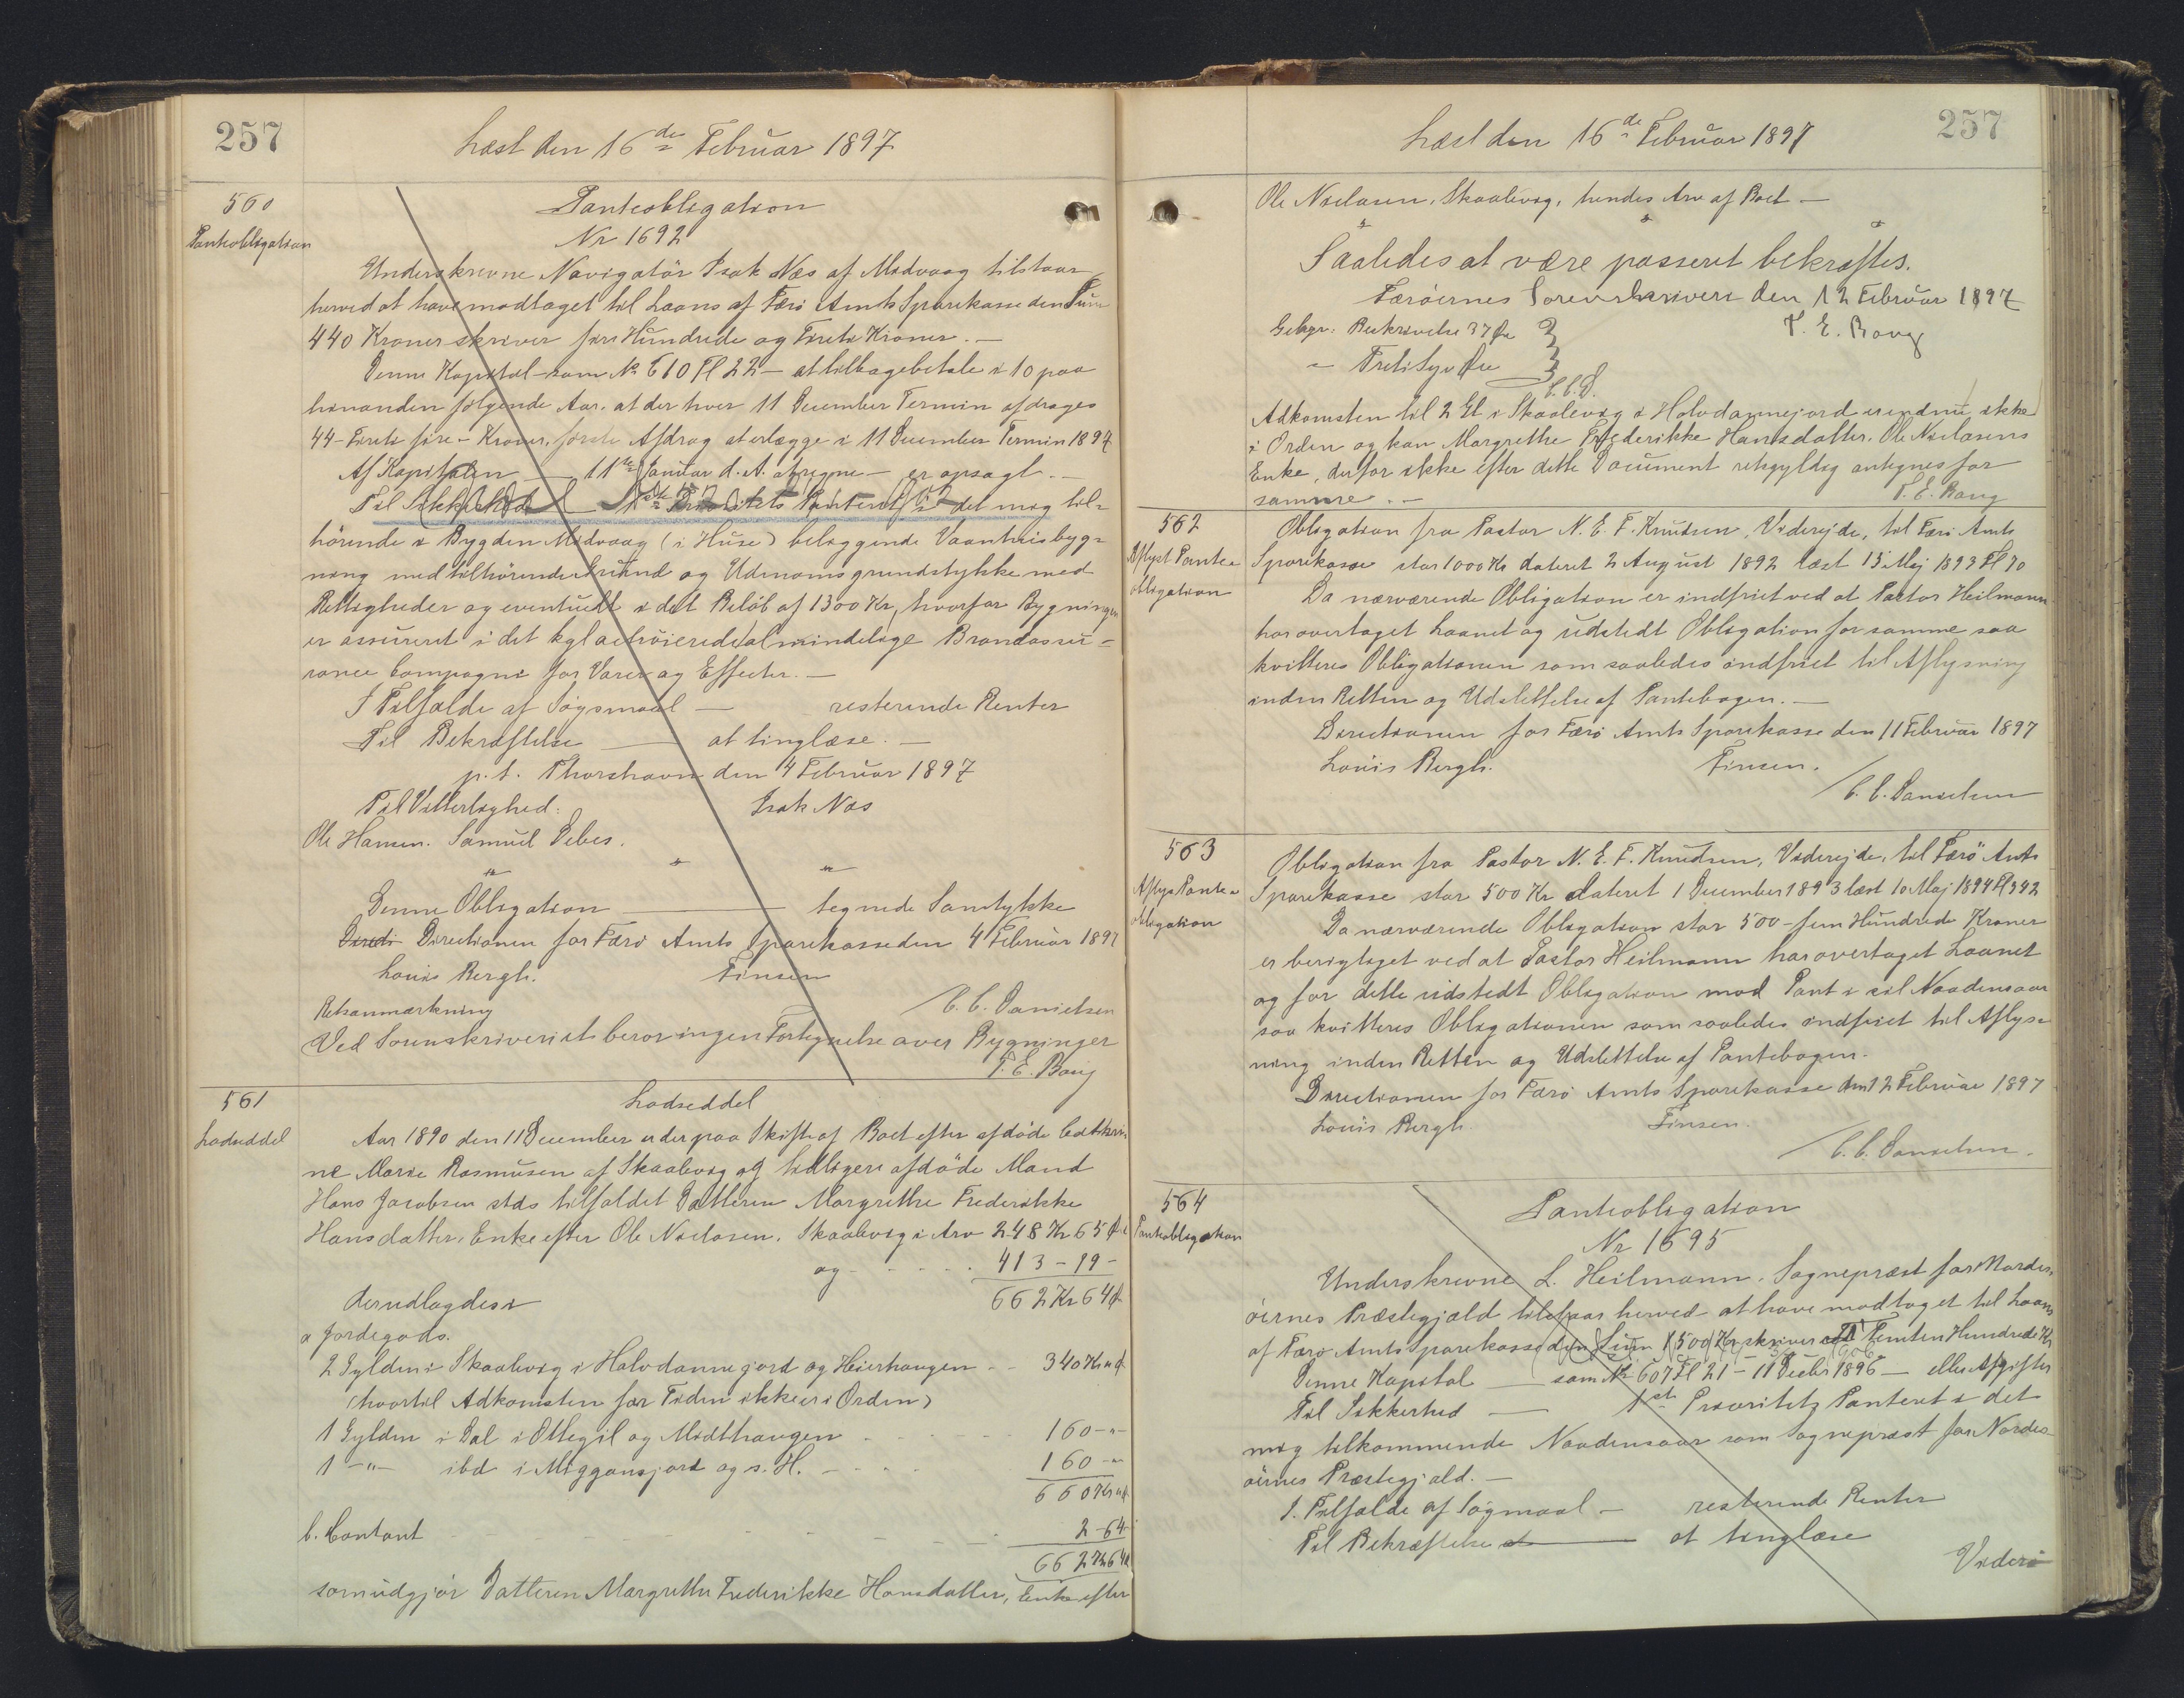 257
Læst den 16de Februar 1897
560
Panteobligation
Panteobligation
Nr 1692
Underskrevne Navigatör Isak Næs af Midvaag tilstaar
herved at have modtaget til Laans af Færö Amts Sparekasse den Sum
440 Kroner skriver fire Hundrede og Fireti Kroner. —
Denne Kapital – som № 610 Fl 22 – at tilbagebetale i 10 paa
hinanden følgende Aar, at der hver 11 December Termin afdrages
44 – Fireti fire – Kroner, förste Afdrag at erlægge i 11 December Termin 1897
Af Kapitalen — 11te Januar d. A. at regne — er opsagt. —
Til Sikkerhed — 1ste Prioritets Panteret i det mig til-
hörende i Bygden Midvaag (i Huse) beliggende Vaaningsbyg-
ning med tilhörende Grund og Udenomsgrundstykke med
Rettigheder og eventuelt i det Belöb af 1300 Kr, hvorfor Bygningen
er assureret i det kgl octroierede almindelige Brandassu-
rance Compagni for Varer og Effecter. —
I Tilfælde af Sögsmaal — resterende Renter
Til Bekræftelse — at tinglæse. —
p. t. Thorshavn den 4 Februar 1897
Til Vitterlighed: Isak Næs
Ole Hansen. Samuel Debes.
" " "
Denne Obligation — tegnede Samtykke
Directi Directionen for Færö Amts Sparekasse den 4 Februar 1897
Louis Bergh. Finsen
/ C. C. Danielsen
Retsanmærkning
Ved Sorenskriveriet beror ingen Fortegnelse over Bygninger
T. E. Bang
561
Lodseddel
Lodseddel
Aar 1890 den 11 December er der paa Skifte af Boet efter afdöde Cathri-
ne Marie Rasmusen af Skaalevig og tidligere afdöde Mand
Hans Jacobsen stds tilfaldet Datteren Margrethe Frederikke
Hansdatter, Enke efter Ole Nielasen, Skaalevig i Arv 248 Kr 65 Ø
og - - - - - 413 – 19 –
662 Kr 64 Ø
der udlagdes i
a Jordegods.
2 Gylden i Skaalevig i Halvdannegjord og Heierhaugen - - 340 Kr " Ø
(hvortil Adkomsten for Tiden ikke er i Orden)
1 Gylden i Dal i Ottegil og Midthaugen - - - - 160 – "
1 – " – ibd i Miggansjord og s. H. - - - - 160 – "
660 Kr " Ø
b. Contant - - - - - - - 2 – 64
662 Kr 64 Ø
som udgjör Datteren Margrethe Frederikke Hansdatter, Enke efter
257
Læst den 16de Februar 1897
Ole Nielasen, Skaalevig, hendes Arv af Boet —
" "
Saaledes at være passeret bekræftes.
Færöernes Sorenskriveri den 12 Februar 1897
T. E. Bang
Gebyr: Beskrivelse 37 Øre
– Treti Syv Øre
Adkomsten til 2 Gl i Skaalevig i Halvdannejord er endnu ikke
i Orden og kan Margrethe Frederikke Hansdatter, Ole Nielasens
Enke, derfor ikke efter dette Document retsgyldig antegnes for
samme. — T. E. Bang
562
Aflyst Pante-
obligation
Obligation fra Pastor N. E. F. Knudsen, Viderejde, til Færö Amts
Sparekasse stor 1000 Kr dateret 2 August 1892 læst 15 Maj 1893 Fl 70
Da nærværende Obligation er indfriet ved at Pastor Heilmann
har overtaget Laanet og udstedt Obligation for samme saa
kvitteres Obligationen som saaledes indfriet til Aflysning
inden Retten og Udslettelse af Pantebogen. —
Directionen for Færö Amts Sparekasse den 11 Februar 1897
Louis Bergh. Finsen.
/ C. C. Danielsen
563
Aflyst Pante-
obligation
Obligation fra Pastor N. E. F. Knudsen, Viderejde, til Færö Amts
Sparekasse stor 500 Kr dateret 1 December 1893 læst 10 Maj 1894 Fl 342
Da nærværende Obligation stor 500 – fem Hundrede Kroner
er berigtiget ved at Pastor Heilmann har overtaget Laanet
og for dette udstedt Obligation mod Pant i sit Naadensaar
saa kvitteres Obligationen som saaledes indfriet til Aflys-
ning inden Retten og Udslettelse af Pantebogen.
Directionen for Færö Amts Sparekasse den 12 Februar 1897
Louis Bergh. Finsen.
/ C. C. Danielsen.
564
Panteobligation
Panteobligation
Nr 1695
Underskrevne L. Heilmann, Sognepræst for Norder-
öernes Præstegjæld tilstaar herved at have modtaget til Laans
af Færö Amts Sparekasse den Sum 1500 Kr skriver Femten Hundrede Kr
Denne Kapital — som № 607 Fl 21 – 11 Decbr 1896 — eller Afgifter
Til Sikkerhed — 1ste Prioritets Panteret i det
mig tilkommende Naadensaar som Sognepræst for Norder-
öernes Præstegjæld. —
I. Tilfælde af Sögmaal — resterende Renter
Til Bekræftelse — at tinglæse
Viderö